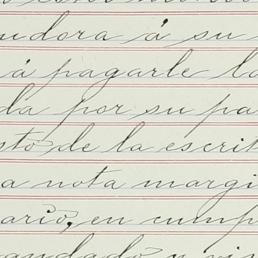 udora á su
á pagarle la
da por su pa
sto de la escrit
a nota margi
ario, en cump
andado y vis